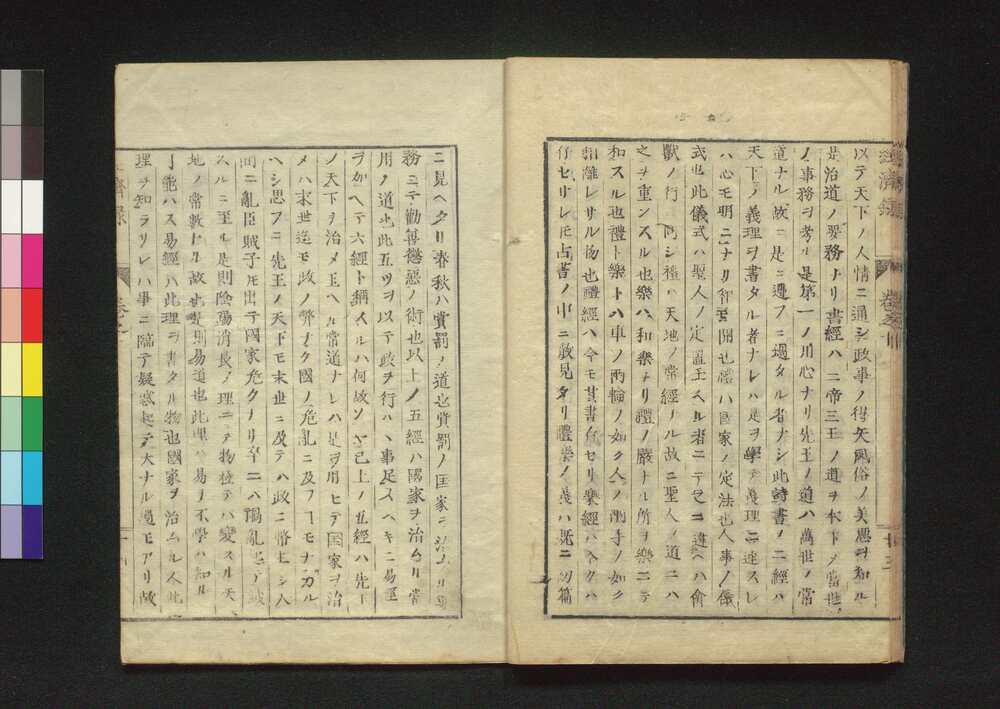 以テ天下ノ人情ニ通シ政事ノ得失風俗ノ美惡ヲ知ル
是治道ノ要務ナリ書經ハ二帝三王ノ道ヲ本トメ當世
ノ事務ヲ考ル是第一ノ用心ナリ先王ノ道ハ萬世ノ常
道ナル故ニ是ニ遵フニ過タル者ナシ此詩書ノ二經ハ
天下ノ義理ヲ書タル者ナレハ是ヲ學テ義理ニ達スレ
ハ心モ明ニナリ智モ開也禮ハ國家ノ定法也人事ノ儀
式也此儀式ハ聖人ノ定置玉ヘル者ニテ之ニ違ヘハ禽
獸ノ行ニ同シ禮ハ天地ノ常經ナル故ニ聖人ノ道ニハ
之ヲ重ンスル也樂ハ和樂ナリ禮ノ嚴ナル所ヲ樂ニテ
和スル也禮ト樂トハ車ノ兩輪ノ如ク人ノ兩手ノ如ク
相離レサル物也禮經ハ今モ其書存セリ樂經ハ今ハ
セリレ𪜈古書ノ中ニ散見タリ禮樂ノ義ハ既ニ初篇
ニ見ヘタリ春秋ハ賞罰ノ道也賞罰ノ國家ニ
務ニテ勸善懲惡ノ術也以上ノ五經ハ國家ヲ治ムル常
用ノ道也此五ツヲ以テ政ヲ行ハヽ事足スヘキニ易經
ヲ加ヘテ六經ト稱スルハ何故ソ已上ノ五經ハ先王
ノ天下ヲ治メ玉ヘル常道ナレハ是ヲ用ヒテ國家ヲ治
メハ末世迄モ政ノ弊ナク國ノ危亂ニ及フヿモナカル
ヘシ思フニ先王ノ天下モ末世ニ及テハ政ニ弊生シ人
間ニ亂臣賊子𪜈出テ國家危クナリ卒ニハ禍亂起テ滅
スルニ至ル是則陰陽消長ノ理ニテ物極テハ變スル天
地ノ常數ナル故也是則易道也此理ハ易ヲ不學ハ知ル
ヿ能ハス易經ハ此理ヲ書タル物也國家ヲ治ムル人此
理ヲ知ラサレハ事ニ臨テ疑惑起テ大ナル過モアリ故